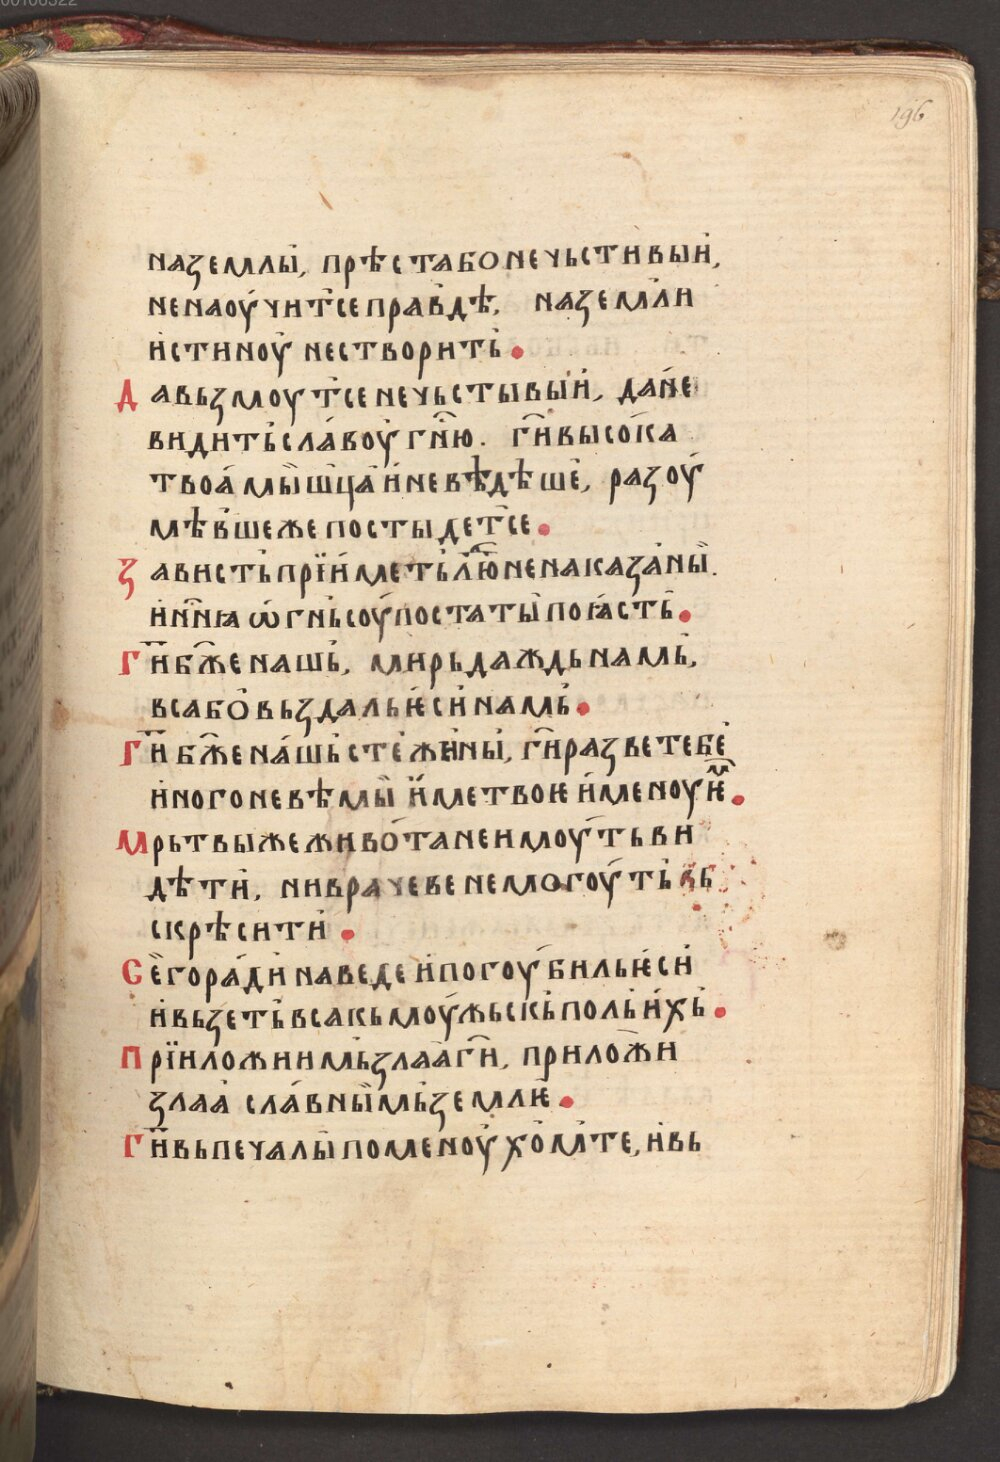 196
на земллы, прѣста бо нечьстивыи,
не наоучит се правдѣ, на земли
истиноу не створить.
Да вьзмоут се нечьстывыи, да не
видить славоу гню. ги висока
твоа мышца и не вѣдѣше, разоу
мѣвше же постыдет се.
Зависть прїимметь лю не наказаны.
и ннꙗ ѡгнь соупостаты поꙗсть.
Ги бже нашь, мирь даждь намь,
вса бо вьздаль ѥси намь.
Ги бже нашь стежины, ги разве тебе
иного не вѣмы име твоѥ именоуѥм.
Мрьтвы же живота не имоуть ви
дѣти, ни врачеве не могоуть вь
скрѣсити.
Сего ради наведе и погоубиль ѥси
и вьзеть всакь моужьскь поль ихь.
Прїиложи имь злаа ги, приложи
злаа славнымь землѥ.
Ги вь печалы поменоухом те, и вь